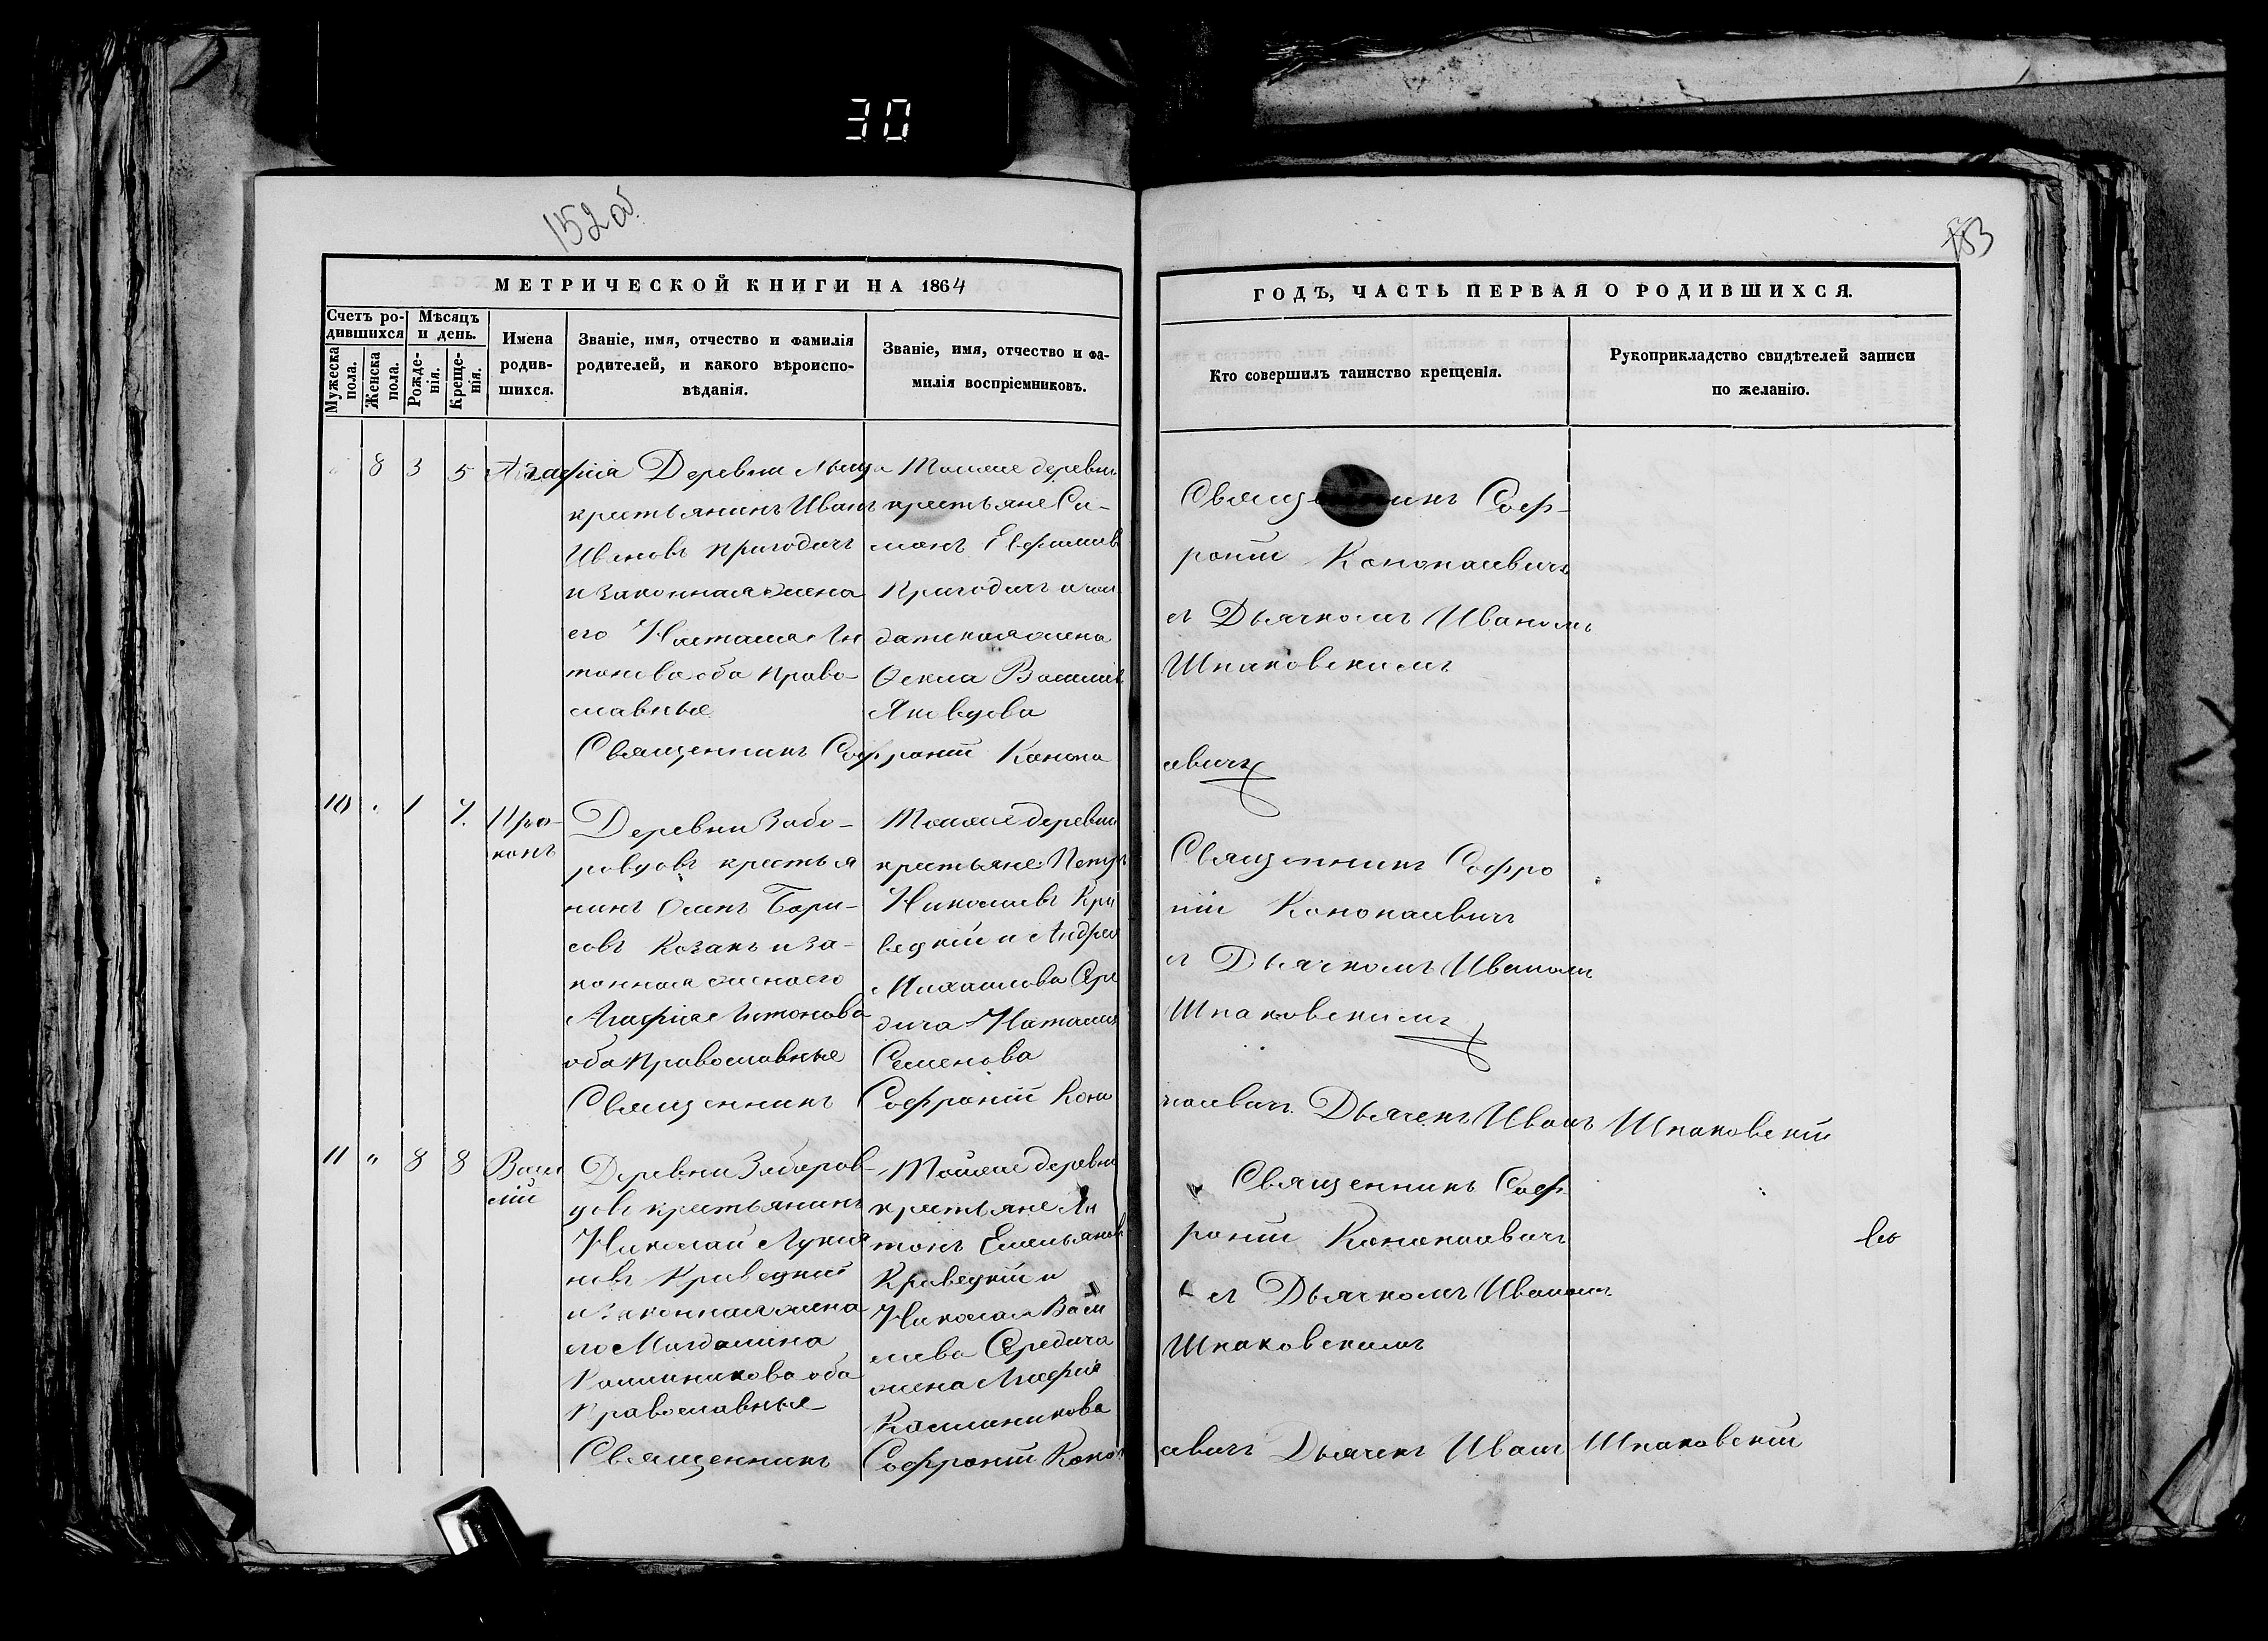 30
152 об.
153
МЕТРИЧЕСКОЙ КНИГИ НА 1864
ГОДЪ, ЧАСТЬ ПЕРВАЯ О РОДИВШИХСЯ.
Счетъ ро-
дившихся
Мужеска
пола.
Женска
пола.
Мѣсяцъ
и день.
Рожде-
нія.
Креще-
нія.
Имена
родив-
шихся.
Званіе, имя, отчество и фамилія
родителей, и какого вѣроиспо-
вѣданія.
Званіе, имя, отчество и фа-
милія воспріемниковъ.
Кто совершилъ таинство крещенія.
Рукоприкладство свидѣтелей записи
по желанію.
8 3 5 Агафія
Деревни
крестьянинъ Иванъ
Ивановъ Пригодичъ
и законная жена
его Наталія Ан
тонова оба право-
славные
Тойже деревни
крестьяне Си-
монъ Евфимовъ
Пригодичъ и сол
датская жена
Ѳекла
Яковцова
Священникъ Соф-
роній Кононаевичъ
съ Дьячкомъ Иваномъ
Шпаковскимъ
Священникъ Софроній Конона
евичъ
10 " 1 7. Про-
копъ
Деревни Забо-
ровцовъ крестья
нинъ Осипъ Бори-
совъ Козакъ и за-
конная жена его
Агафія Антонова
оба Православные
Тойже деревни
крестьяне Петръ
Николаевъ Кри
вецкій и Андрея
Михаилова Сере
дича Наталія
Семенова
Священникъ Софро
ній Кононаевичъ
съ Дьячкомъ Иваномъ
Шпаковскимъ
Священникъ Софроній Коно
наевичъ Дьячекъ Иванъ Шпаковскій
11 " 8 8 Васи
лій
Деревни Заборов-
цовъ крестьянинъ
Николай Лукья
новъ Кривецкій
и законная жена
его Магдалина
Калиникова оба
Православные
Тойже деревни
крестьяне Ан
тонъ Емельяновъ
Кривецкій и
Николая Васи
лиева Середича
жена Агафія
Калиникова
Священникъ Соф-
роній Кононаевичъ
съ Дьячкомъ Иваномъ
Шпаковскимъ
Священникъ Софроній Конон
аевичъ Дьячекъ Иванъ Шпаковскій